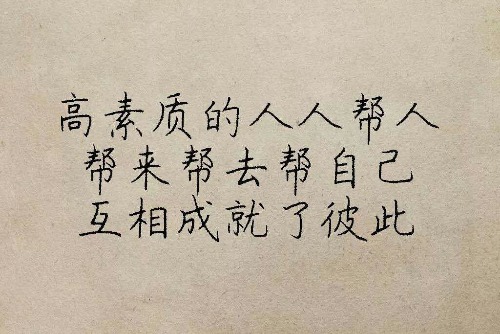 高素质的人人帮人
帮来帮去帮自己
互相成就了彼此